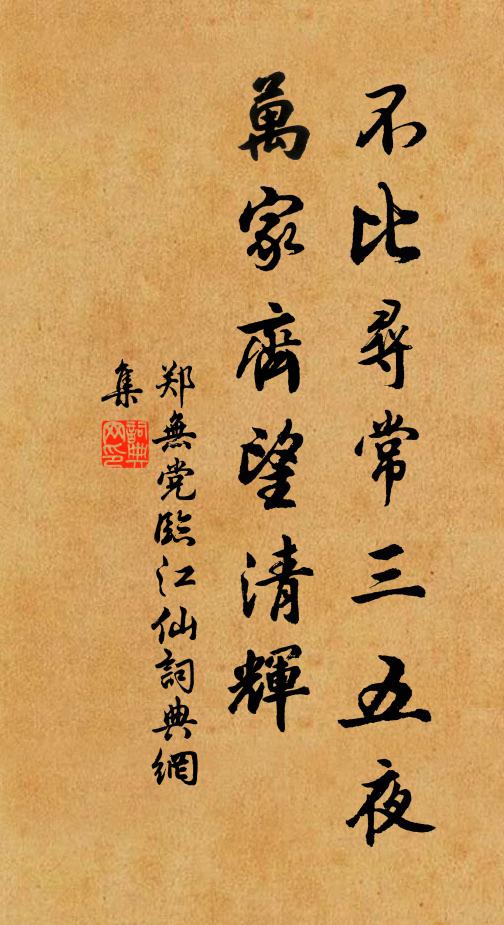 不比尋常三五夜
萬家齊望清輝
郑無党臨江仙詞典網
集
詞典網印